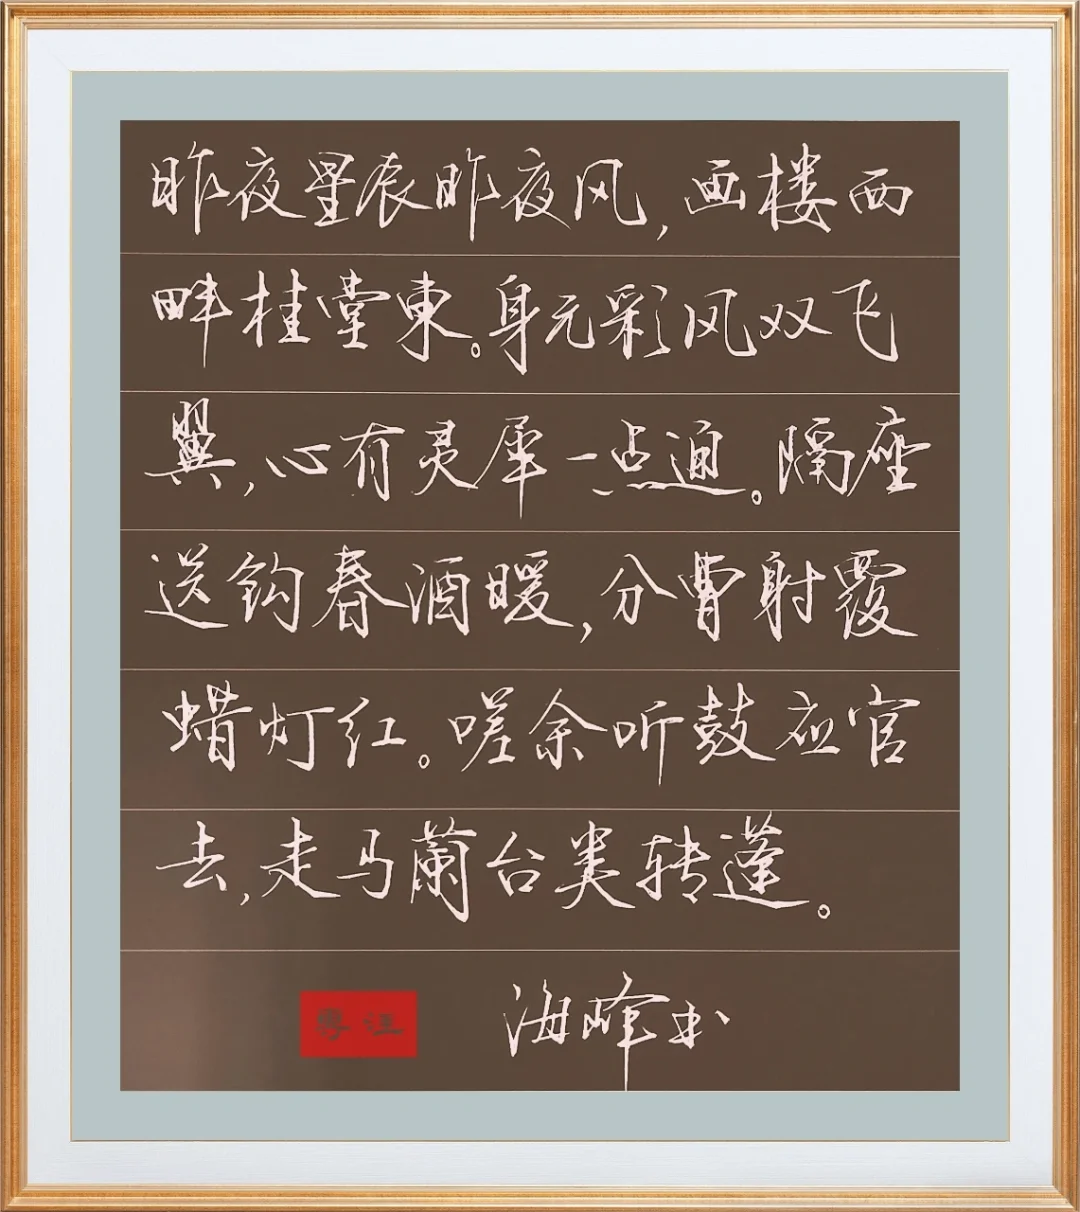 昨夜星辰昨夜风，画楼西
畔桂堂東。身无彩凤双飞
翼，心有灵犀一点通。隔座
送钩春酒暖，分曹射覆
蜡灯红。嗟余听鼓应官
去，走马蘭台类转蓬。
海峰书